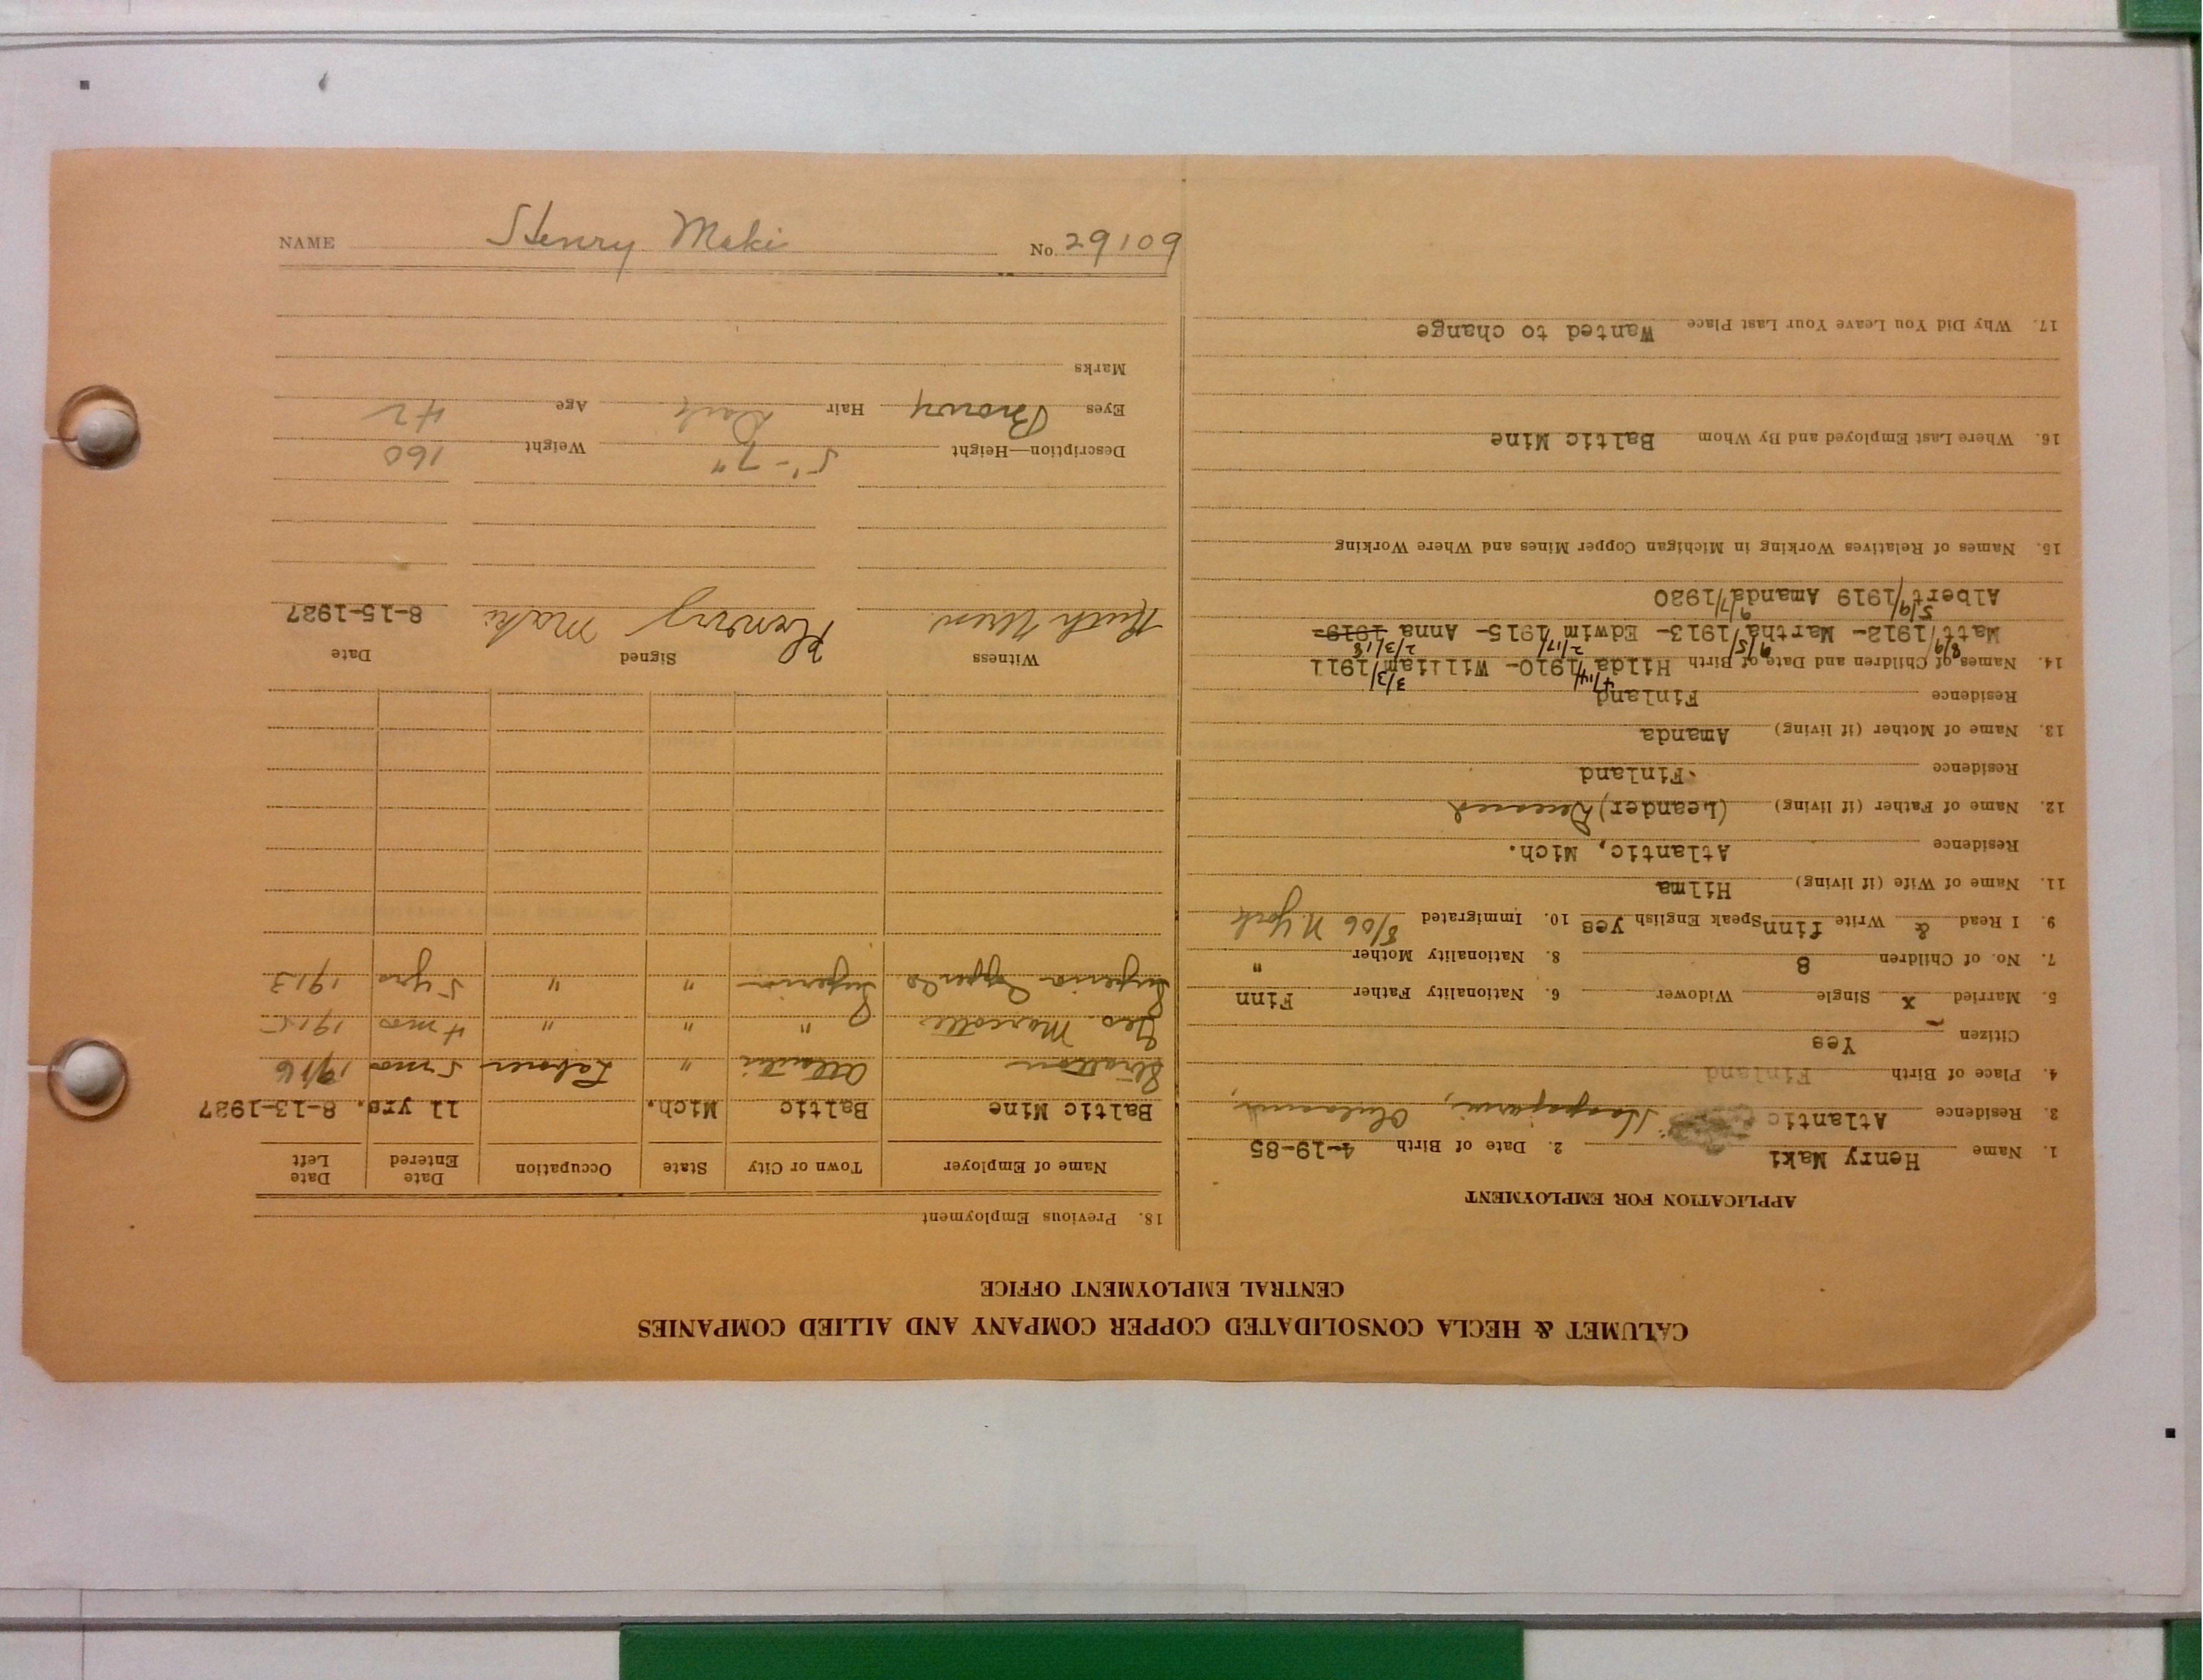 NAME Henry Maki No. 29109
CALUMET & HECLA CONSOLIDATED COPPER COMPANY AND ALLIED COMPANIES
CENTRAL EMPLOYMENT OFFICE
APPLICATION FOR EMPLOYMENT
1. Name Henry Maki 2. Date of Birth 4-19-85
3. Residence Atlantic
4. Place of Birth Finland
Citizen Yes
5. Married x Single Widower 6. Nationality Father Finn
7. No. of Children 8 8. Nationality Mother "
9. I Read & Write finn Speak English yes 10. Immigrated 8/06 N. York
11. Name of Wife (if living) Hilma
Residence Atlantic, Mich.
12. Name of Father (if living) (Leander) Deceased
Residence Finland
13. Name of Mother (if living) Amanda
Residence Finland
14. Names of Children and Date of Birth Hilda 4/14/1910- William 3/3/1911
Matt 8/9/1912- Martha 9/5/1913- Edwim 2/17/1915- Anna 1919- 2/3/18
Albert 5/9/1919 Amanda 9/7/1920
15. Names of Relatives Working in Michigan Copper Mines and Where Working
16. Where Last Employed and By Whom Baltic Mine
17. Why Did You Leave Your Last Place Wanted to change
18. Previous Employment
Name of Employer Town or City State Occupation Date Entered Date Left
Baltic Mine Baltic Mich. 11 yrs. 8-13-1927
Stratton Atlantic " Laborer 5 mo 1916
Geo. Marcotte " " " 4 mo 1915
Superior Copper Co Superior " " 5 yrs 1913
Witness Signed Date
Ruth Henry Maki 8-15-1927
Description—Height 5'-7" Weight 160
Eyes Brown Hair Dark Age 42
Marks